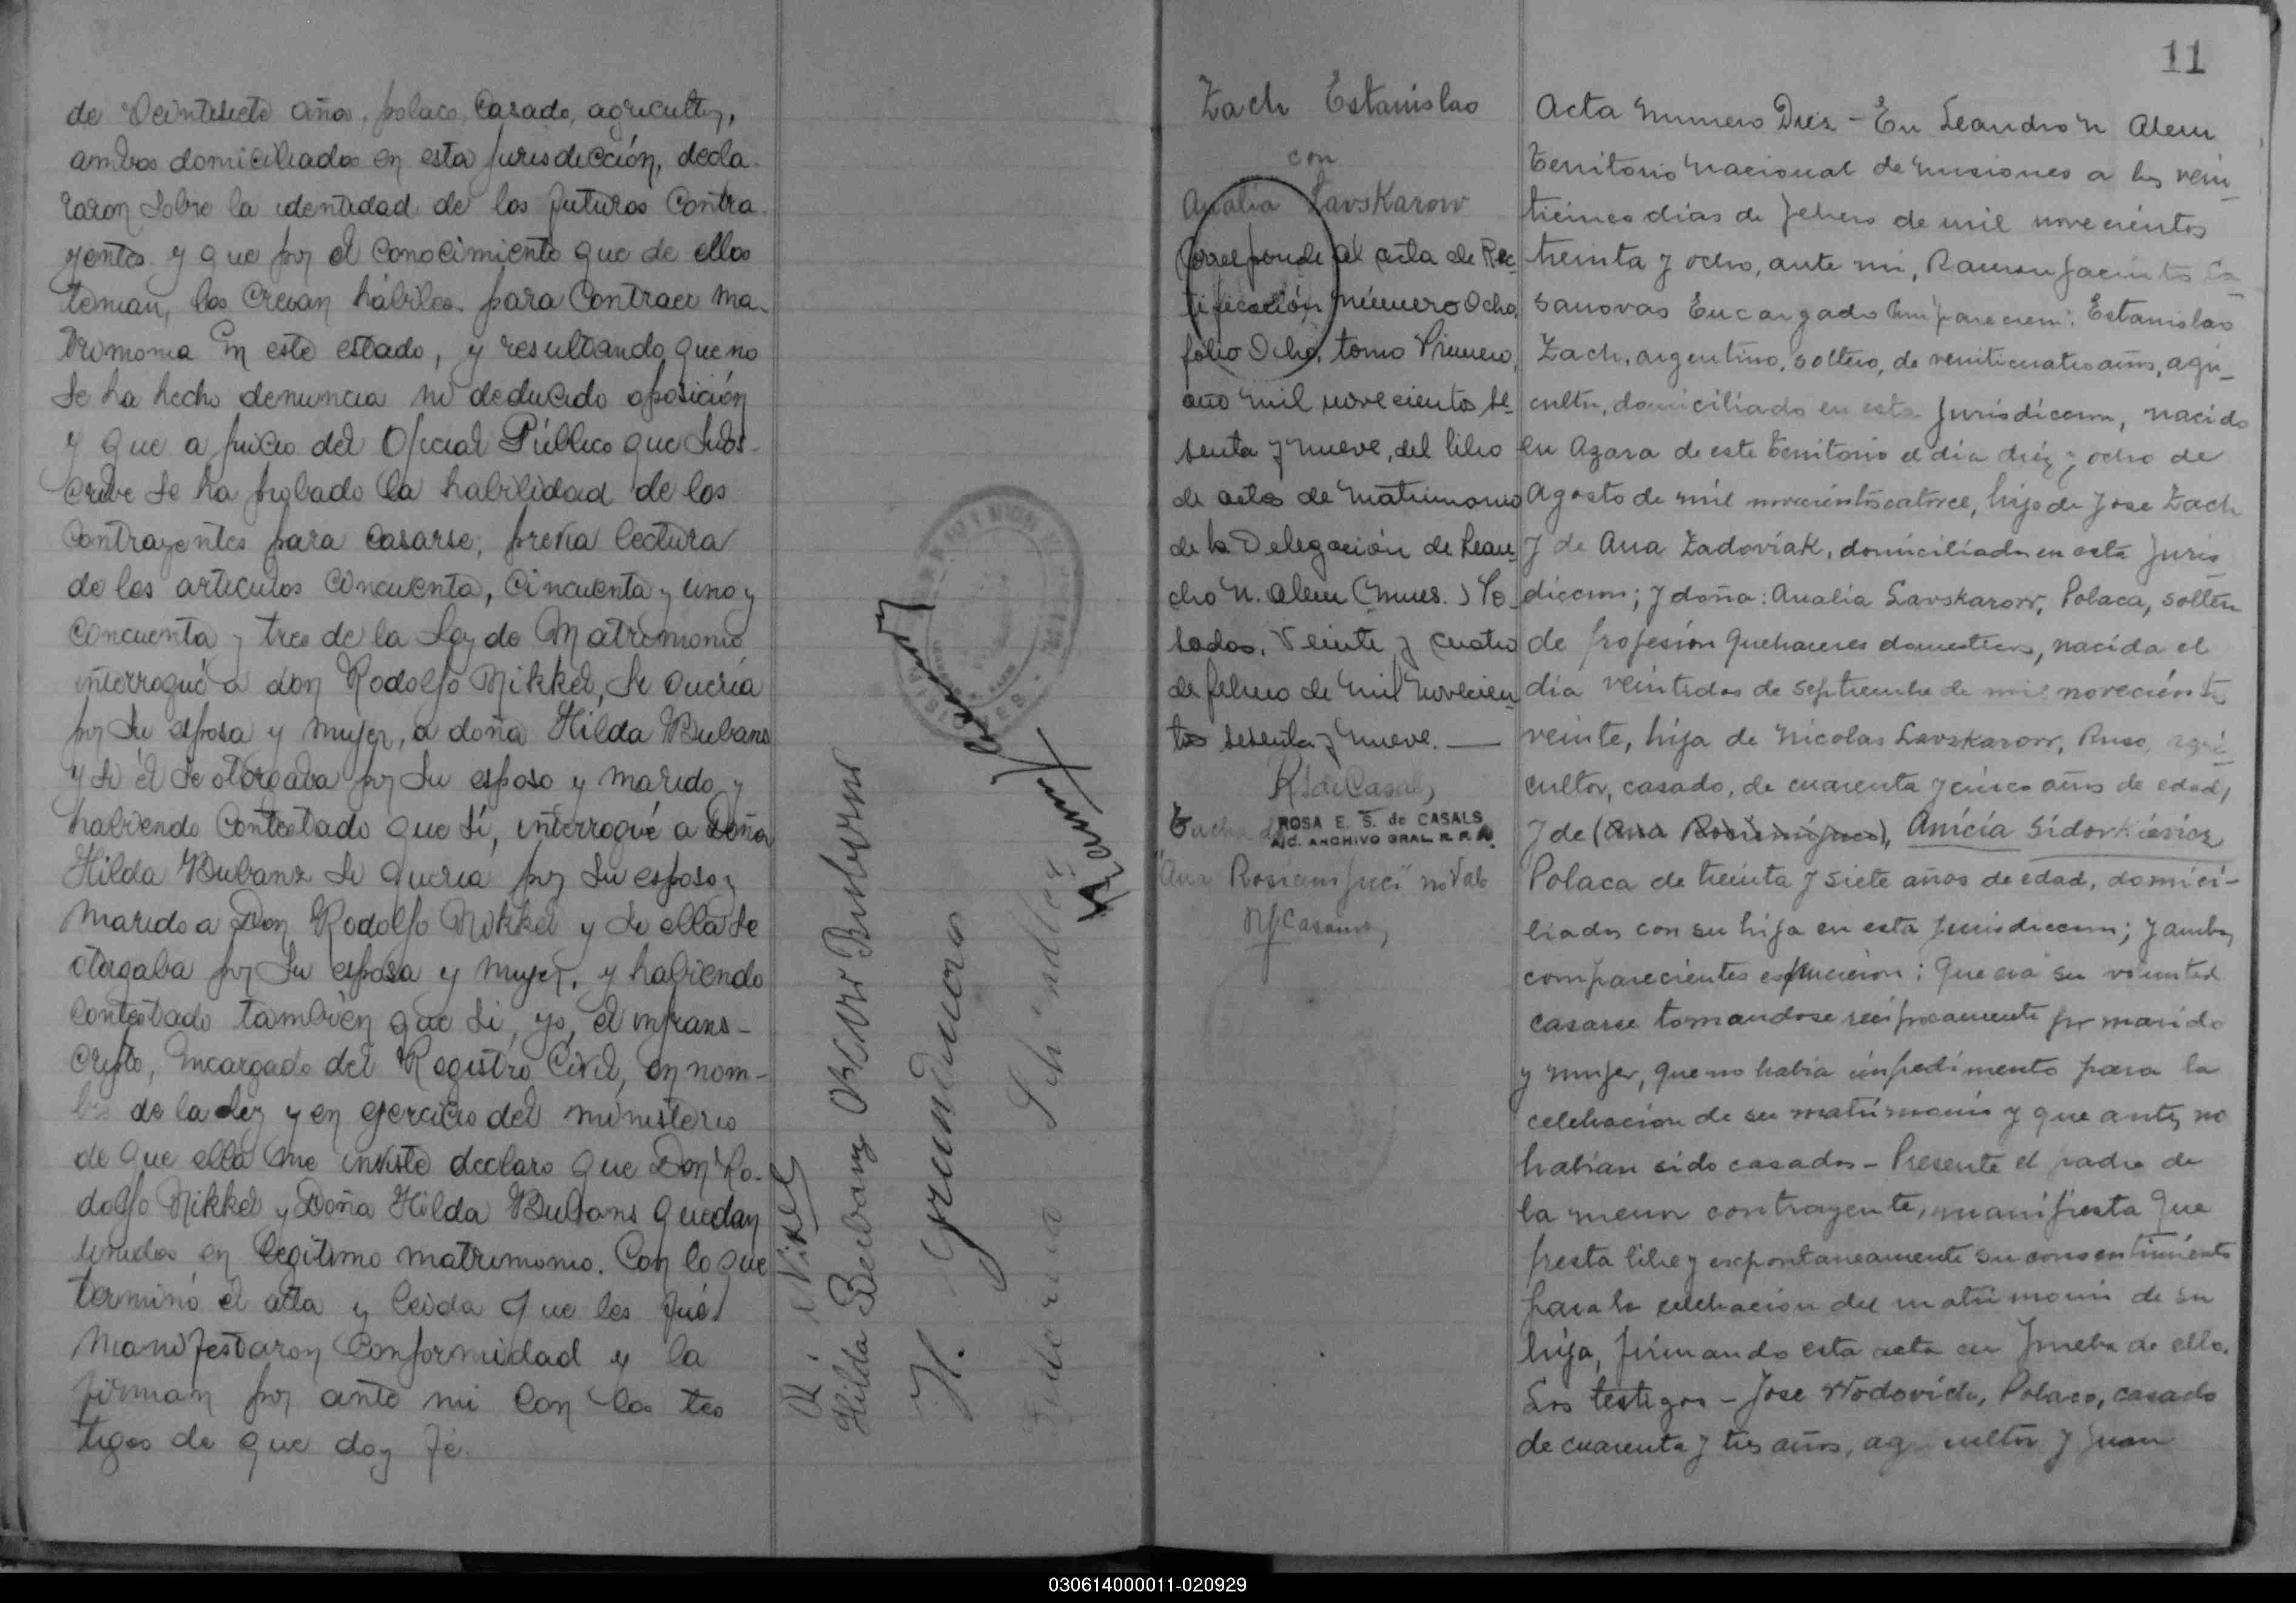 de Veintisiete años, polaco, casado, agricultor,
ambos domiciliados en esta jurisdicción, decla-
raron sobre la identidad de los futuros contra-
yentes y que por el conocimiento que de ellos
tenian, los creian hábiles para contraer ma-
trimonio En este estado, y resultando que no
se ha hecho denuncia ni deducido oposición
y que a juicio del Oficial Público que subs-
cribe se ha probado la habilidad de los
contrayentes para casarse; previa lectura
de los articulos cincuenta, cincuenta y uno y
cincuenta y tres de la Ley de Matrimonio
interrogué a don Rodolfo Nikkel, si queria
por su esposa y mujer, a doña Hilda Bubans
y si él se otorgaba por su esposo y marido y
habiendo contestado que sí, interrogué a Doña
Hilda Bubanz si queria por su esposo y
marido a Don Rodolfo Nikkel y si ella se
otorgaba por su esposa y mujer, y habiendo
contestado también que si, yo, el infrans-
cripto, Encargado del Registro Civil, en nom-
bre de la Ley y en ejercicio del ministerio
de que ella me inviste declaro que Don Ro-
dolfo Nikkel y Doña Hilda Bubans quedan
unidos en legítimo matrimonio. Con lo que
terminó el acta y leida que les fué
manifestaron conformidad y la
firman por ante mi con los tes
tigos de que doy fé.
Hilda Bubanz
H. Grundmann
Schindler
11
Zach Estanislao
con
Analia Lavskarow
Corresponde al acta de Rec-
tificación número Ocho,
folio Ocho, tomo Primero,
año mil novecientos se-
senta y nueve, del libro
de actas de matrimonio
de la Delegación de Lean-
dro N. Alem (Mnes.) Po-
sadas, Veinte y cuatro
de febrero de mil novecien-
tos sesenta y nueve. —
R S de Casals
ROSA E. S. de CASALS
A/C. ARCHIVO GRAL R. P. P.
no vale
Acta numero Diez - En Leandro N Alem
Territorio Nacional de Misiones a los vein-
ticinco dias de febrero de mil novecientos
treinta y ocho, ante mi, Ramon Jacinto Ca-
sanovas Encargado comparecieron: Estanislao
Zach, argentino, soltero, de veinticuatro años, agri-
cultor, domiciliado en esta Jurisdiccion, nacido
en Azara de este territorio el dia diez y ocho de
Agosto de mil novecientos catorce, hijo de Jose Zach
y de Ana Zadoviak, domiciliados en esta Juris
diccion; y doña: Analia Lavskarow, Polaca, soltera
de profesion quehaceres domesticos, nacida el
dia veintidos de septiembre de mil novecientos
veinte, hija de Nicolas Lavskarow, Ruso, agri-
cultor, casado, de cuarenta y cinco años de edad,
y de Anicia Sidorkievicz
Polaca de treinta y siete años de edad, domici-
liados con su hija en esta jurisdiccion; y ambos
comparecientes expusieron: Que era su voluntad
casarse tomandose reciprocamente por marido
y mujer, que no habia impedimento para la
celebracion de su matrimonio y que antes no
habian sido casados - Presente el padre de
la menor contrayente, manifiesta que
presta libre y expontaneamente su consentimiento
para la celebracion del matrimonio de su
hija, firmando esta acta en prueba de ello.
Los testigos - Jose Wodovich, Polaco, casado
de cuarenta y tres años, agricultor y Juan
030614000011-020929